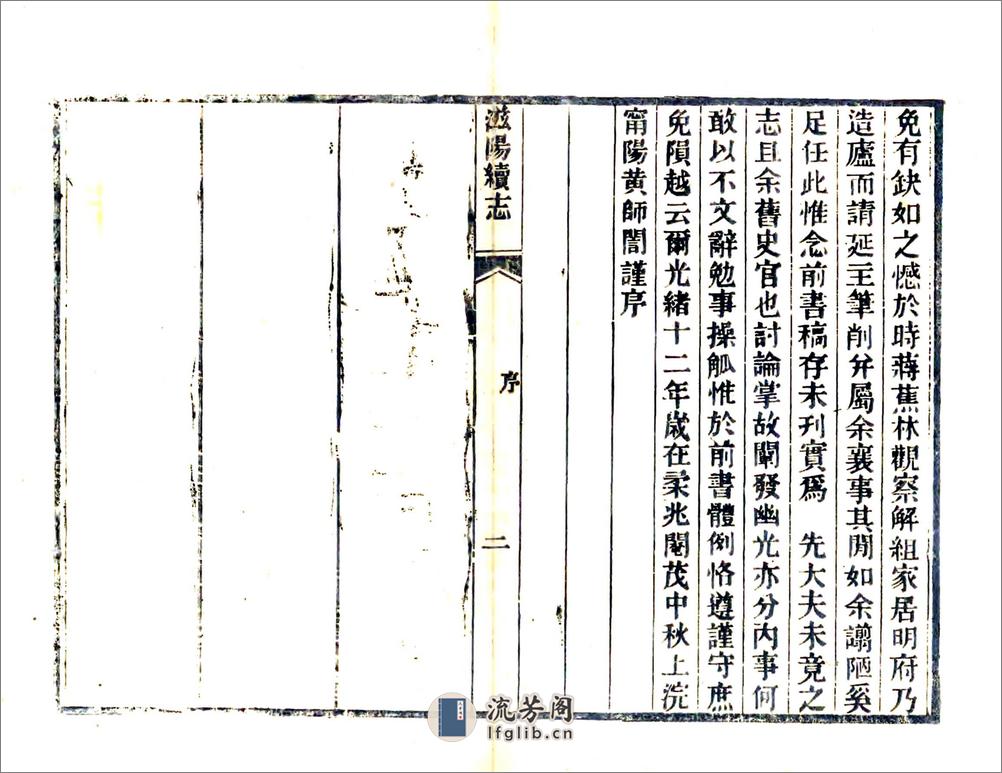 免有缺如之憾於時蔣蕉林觀察解組家居明府乃
造廬而請延主筆削弁屬余襄事其閒如余譾陋奚
足任此惟念前書稿存未刋實爲　先大夫未竟之
志且余舊史官也討論掌故闡發幽光亦分內事何
敢以不文辭勉事操觚惟於前書體例恪遵謹守庶
免隕越云爾光緖十二年歲在柔兆閹茂中秋上浣
甯陽黃師誾謹序
滋陽續志
序
二
流芳阁
lfglib.cn